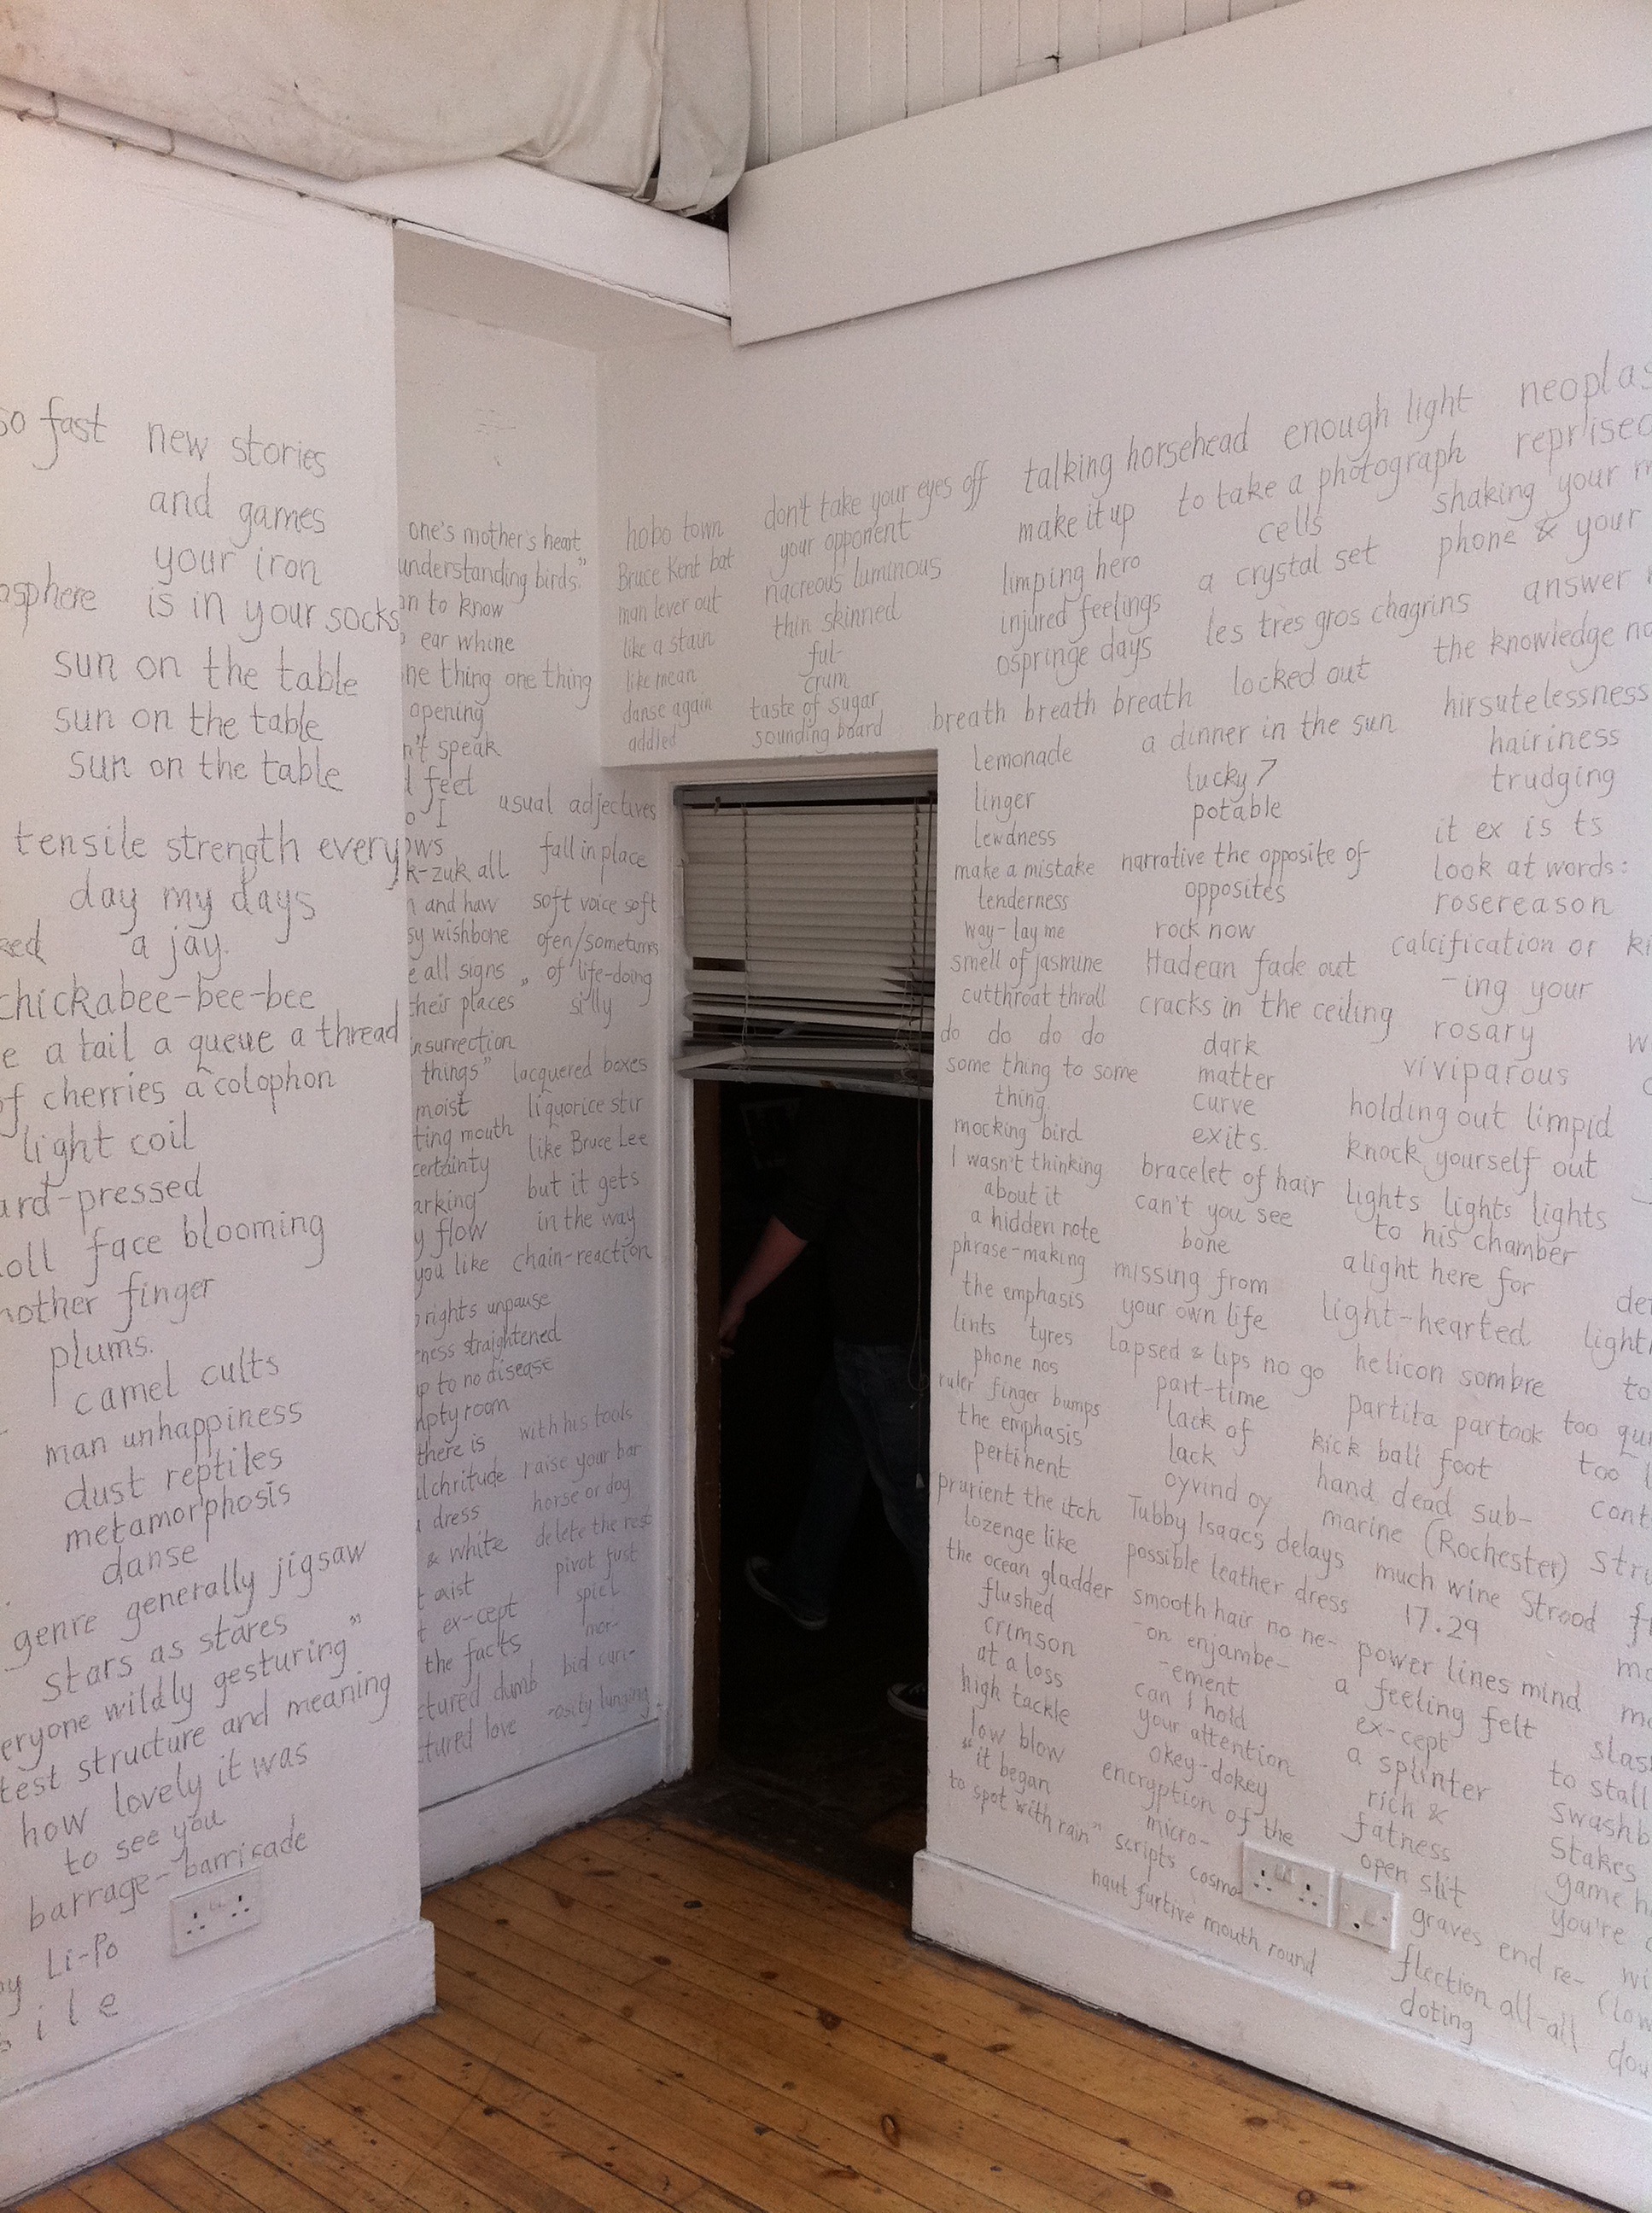 so fast
new stories
and games
your iron
is in your socks
sun on the table
sun on the table
sun on the table
tensile strength every
day my days
a jay.
chickabee-bee-bee
a tail a queue a thread
of cherries a colophon
light coil
face blooming
finger
plums.
camel cults
man unhappiness
dust reptiles
metamorphosis
danse
genre generally jigsaw
stars as stares
wildly gesturing"
structure and meaning
how lovely it was
to see you
barrage-barricade
Li-Po
one's mother's heart
understanding birds."
to know
ear whine
thing one thing
opening
speak
feet
I
all
and haw
wishbone
all signs
their places"
insurrection
things"
moist
mouth
certainty
flow
you like
rights unpause
straightened
to no disease
room
there is
dress
& white
ex-cept
the facts
dumb
love
usual adjectives
fall in place
soft voice soft
ofen/sometimes
of life-doing
silly
lacquered boxes
liquorice stir
like Bruce Lee
but it gets
in the way
chain-reaction
with his tools
raise your bar
horse or dog
delete the rest
pivot fust
spiel
mor-
bid curi-
-osity lunging
hobo town
Bruce Kent bat
man lever out
like a stain
like mean
danse again
addled
don't take your eyes off
your opponent
nacreous luminous
thin skinned
ful-
crum
taste of sugar
sounding board
talking horsehead
make it up
limping hero
injured feelings
ospringe days
breath breath breath
lemonade
linger
lewdness
make a mistake
tenderness
way-lay me
smell of jasmine
cutthroat thrall
do do do do
some thing to some
thing
mocking bird
I wasn't thinking
about it
a hidden note
phrase-making
the emphasis
lints tyres
phone nos
ruler finger bumps
the emphasis
pertinent
prurient the itch
lozenge like
the ocean gladder
flushed
crimson
at a loss
high tackle
low blow
"it began
to spot with rain"
enough light
to take a photograph
cells
a crystal set
les très gros chagrins
locked out
a dinner in the sun
lucky 7
potable
narrative the opposite of
opposites
rock now
Hadean fade out
cracks in the ceiling
dark
matter
curve
exits.
bracelet of hair
can't you see
bone
missing from
your own life
lapsed & lips no go
part-time
lack of
lack
oyvind oy
Tubby Isaacs delays
possible leather dress
smooth hair no ne-
-on enjambe-
-ement
can I hold
your attention
okey-dokey
encryption of the
micro-
scripts cosmo-
naut furtive mouth round
reprised
shaking your
phone & your
answer
the knowledge
hirsutelessness
hairiness
trudging
it ex is ts
look at words:
rosereason
calcification or
-ing your
rosary
viviparous
holding out limpid
knock yourself out
lights lights lights
to his chamber
alight here for
light-hearted
helicon sombre
partita partook
kick ball foot
hand dead sub-
marine (Rochester)
much wine Strood
17.29
power lines mind
a feeling felt
ex-cept
a splinter
rich &
fatness
open slit
graves end re-
flection all-all
doting
too
too
to stall
stakes
game
you're